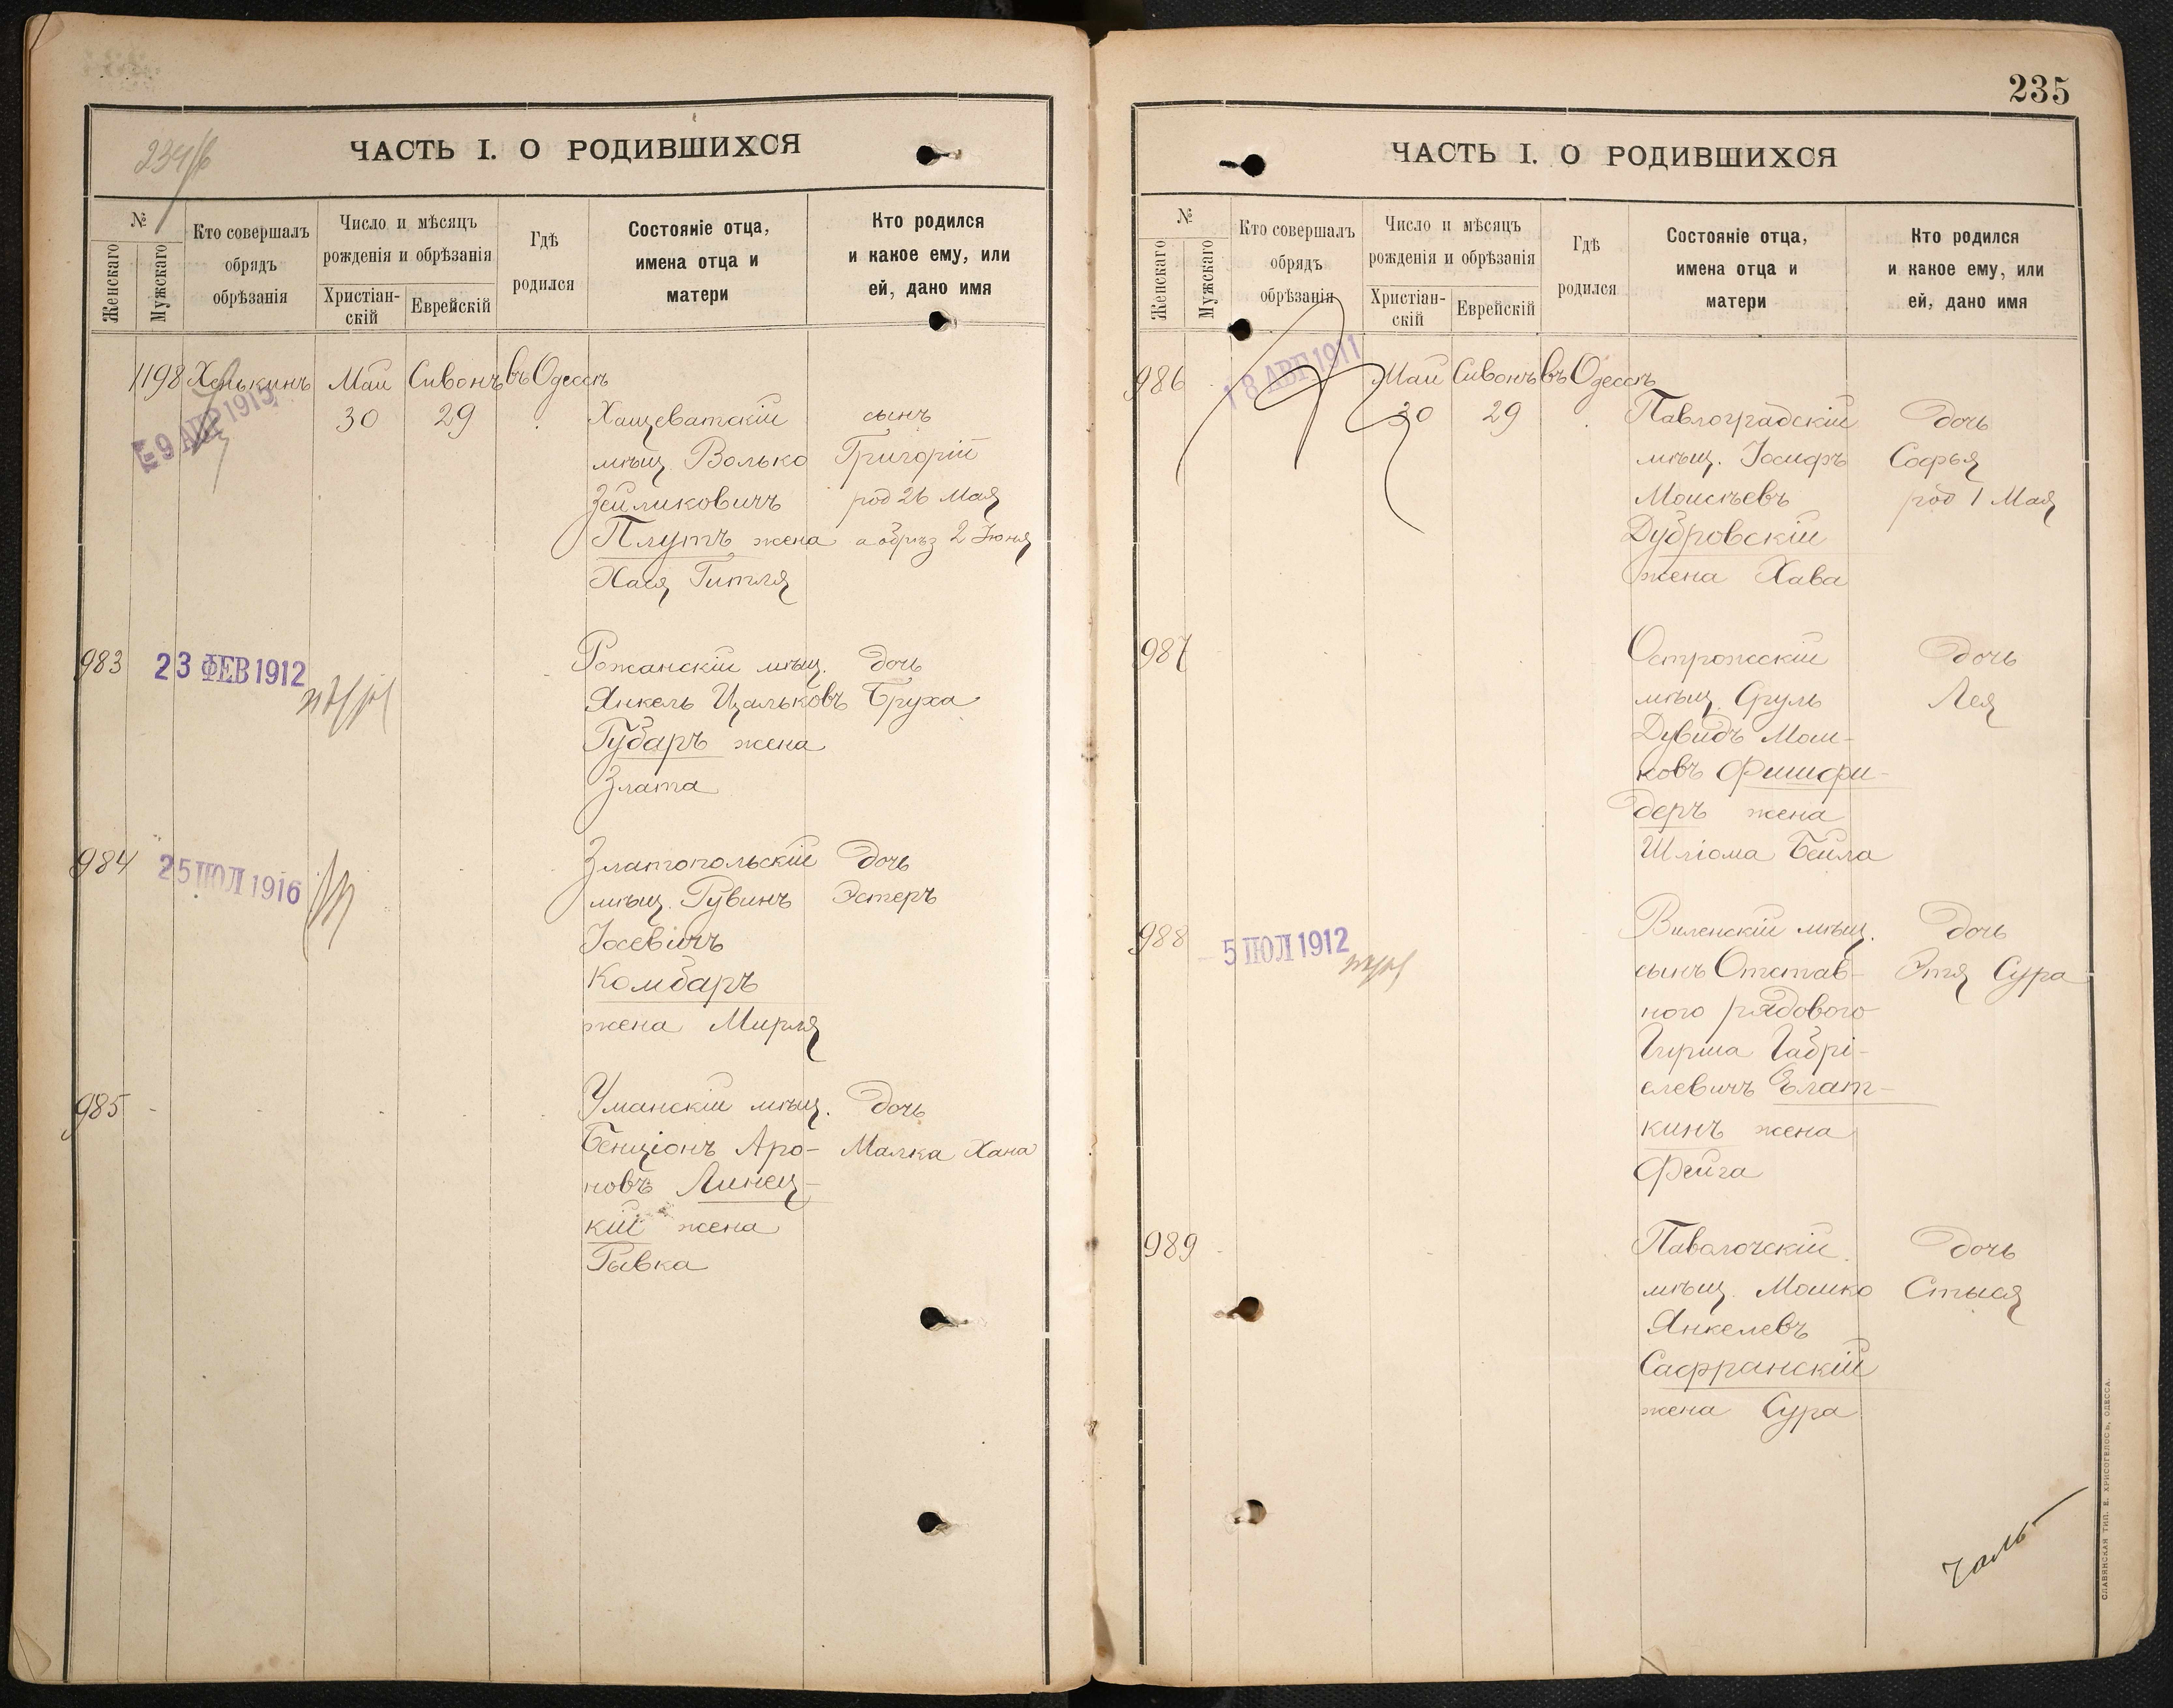 ЧАСТЬ I. О РОДИВШИХСЯ
№
Женскаго
Мужскаго
Кто совершалъ
обрядъ
обрѣзанія
Число и мѣсяцъ
рожденія и обрѣзанія
Христіан-
скій
Еврейскій
Гдѣ
родился
Состояніе отца,
имена отца и
матери
Кто родился
и какое ему, или
ей, дано имя
1198 Май Сивонъ въ Одессѣ
30 29
Хащеватскій сынъ
мѣщ. Волько Григорій
Зейликовичъ род 26 Мая
Плутъ жена а обрѣз 2 Іюня
Хася Гитля
983 23 ФЕВ 1912 Рожанскій мѣщ. дочь
Янкель Ицальковъ Бруха
Губаръ жена
Злата
984 25 ІЮЛ 1916 Златопольскій дочь
мѣщ. Рувинъ Эстеръ
Іосевичъ
Комбаръ
жена Мирля
985 Уманскій мѣщ. дочь
Бенціонъ Аро- Малка Хана
новъ Линец-
кій жена
Рывка
235
ЧАСТЬ I. О РОДИВШИХСЯ
№
Женскаго
Мужскаго
Кто совершалъ
обрядъ
обрѣзанія
Число и мѣсяцъ
рожденія и обрѣзанія
Христіан-
скій
Еврейскій
Гдѣ
родился
Состояніе отца,
имена отца и
матери
Кто родился
и какое ему, или
ей, дано имя
986 18 АВГ 1911 Май Сивонъ въ Одессѣ
30 29
Павлоградскій дочь
мѣщ. Іосифъ Софья
Моисѣевъ род 1 Мая
Дубровскій
жена Хава
987 Острожскій дочь
мѣщ. Сруль Лея
Дувидъ Мош-
ковъ Фишфи-
деръ жена
Шліома Бейла
988 5 ІЮЛ 1912 Виленскій мѣщ. дочь
сынъ Отстав- Этя Сура
ного рядового
Гирша Габрі-
елевичъ Елат-
кинъ жена
Фейга
989 Паволочскій дочь
мѣщ. Мошко Стыся
Янкелевъ
Сафранскій
жена Сура
СЛАВЯНСКАЯ ТИП. Е. ХРИСОГЕЛОСЪ, ОДЕССА.